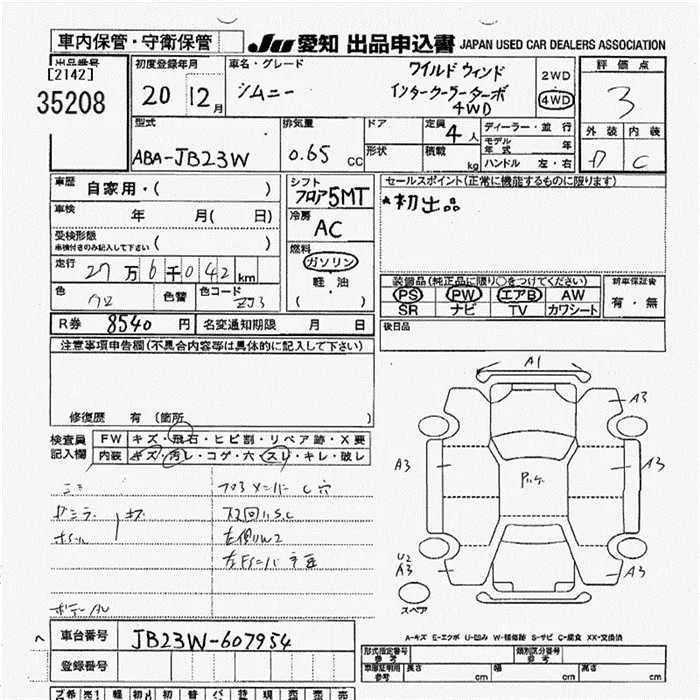 車内保管・守衛保管
JU 愛知 出品申込書 JAPAN USED CAR DEALERS ASSOCIATION
出品番号
[2142]
35208
初度登録年月
20 12月
車名・グレード
シムニー
ワイルドウィンド
インタークーラーターボ
4WD
2WD
4WD
評価点
3
外装 内装
C
型式
ABA-JB23W
排気量
0.65 CC
ドア
形状
定員
4人
積載
kg
ディーラー・並行
モデル年式 年
ハンドル 左・右
車歴
自家用・( )
車検
年 月( 日)
受検形態
車検付きのみ記入して下さい ( )
走行
27万6千042km
色 色替 色コード
ZJ3
シフト
フロア5MT
冷房
AC
燃料
ガソリン
軽・油
( )
セールスポイント(正常に機能するものに限ります)
*初出品
装備品(純正品に限り○をつけてください)
PS PW エアB AW
SR ナビ TV カワシート
新車保証書
有・無
R券 8540円 名変通知期限 月 日
後日品
注意事項申告欄(不具合内容等は具体的に記入して下さい)
修復歴 有 (箇所 )
検査員
記入欄
FW キズ・飛石・ヒビ割・リペア跡・X要
内装 キズ・汚レ・コゲ・穴・スレ・キレ・破レ
A1
A3
A3
A3
U2
A3
A3
スペア
A-キズ E-エクボ U-凹み W-補修跡 S-サビ C-腐食 XX-交換済
車台番号
JB23W-607954
登録番号
形式指定番号
参考
類別区分番号
参考
車庫証明用
参考
長さ cm
幅 cm
高さ cm